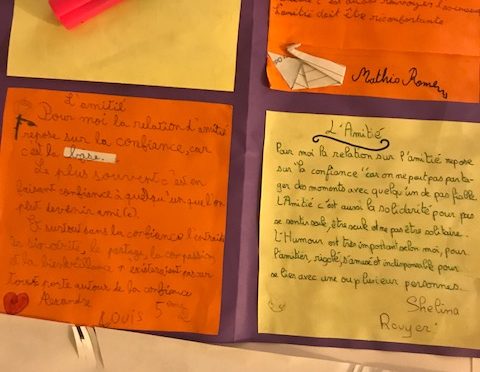 l'amitié doit être réconfortante.
Mathis Rome
L'amitié
Pour moi la relation d'amitié
repose sur la confiance, car
c'est la base.
Le plus souvent c'est en
faisant confiance à quelqu'un quel'on
peut devenir ami(e).
Et surtout dans la confiance l'entraide
la bienveillance n'existeraient pas sur
tout porte autour de la confiance
Alexandre
LOUIS 5ème
L'Amitié
Pour moi la relation sur l'amitié repose
sur la confiance car on ne peut pas parta-
ger des moments avec quelqu'un de pas fiable.
L'Amitié c'est aussi la solidarité pour pas
se sentir seule, être seule et ne pas être solitaire.
L'Humour est très important selon moi, pour
l'amitier, rigolé, s'amusé et indispensable pour
se lier avec une ou plusieur personnes.
Shelina
Rouyer